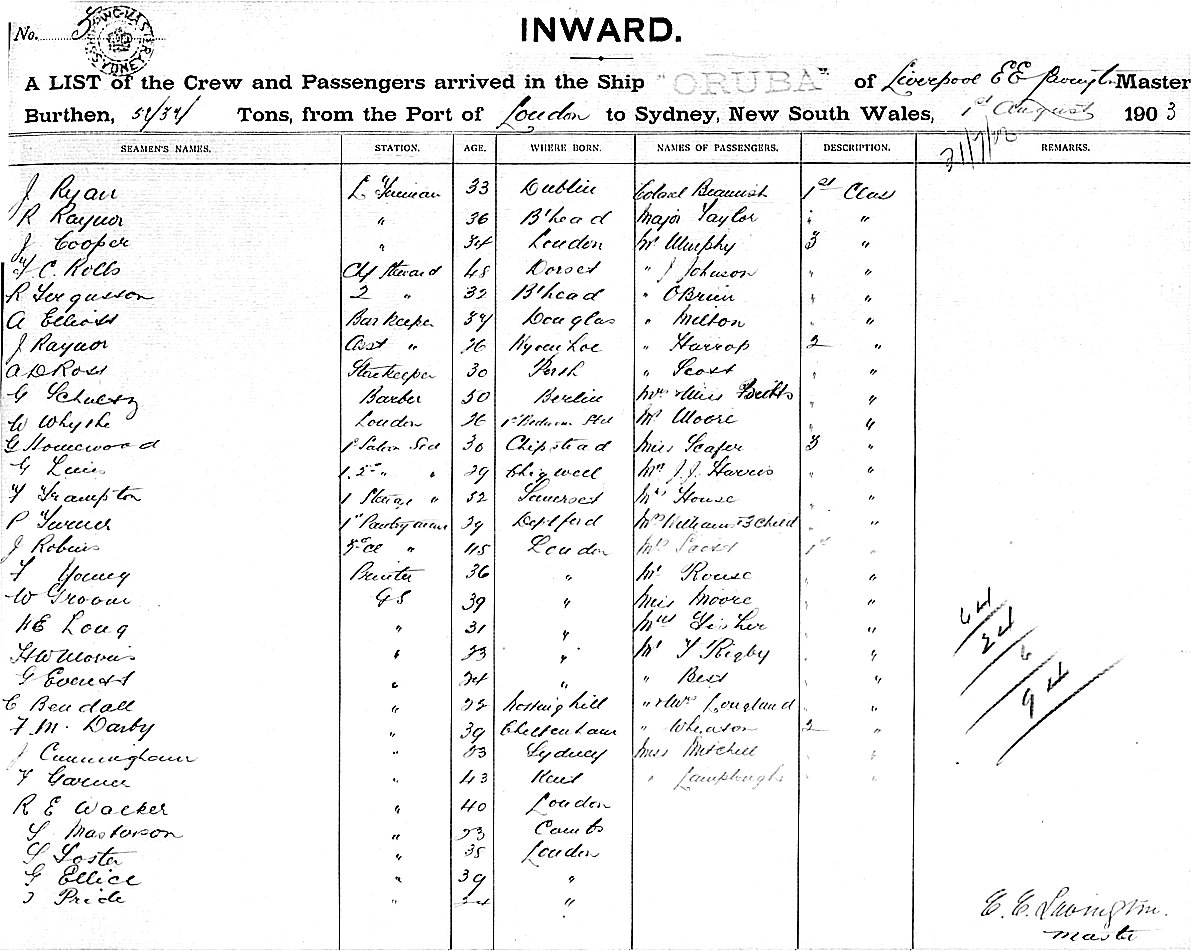 No. 5
SYDNEY
INWARD.
A LIST of the Crew and Passengers arrived in the Ship "ORUBA" of Liverpool E E Master
Burthen, Tons, from the Port of London to Sydney, New South Wales, 1st August 1903
SEAMEN'S NAMES. STATION. AGE. WHERE BORN. NAMES OF PASSENGERS. DESCRIPTION. REMARKS.
J Ryan 33 Dublin Colonel Beamish 1st Class
R Raynor " 36 B'head Major Taylor " "
J Cooper " 34 London Mr Murphy 3 "
C. Rolls Chf Steward 48 Dorset " J Johnson " "
R Fergusson 2 " 32 B'head " O'Brien " "
A Elliott Barkeeper 34 Douglas " Milton " "
J Raynor Asst " 26 " Harrop 2 "
A D Ross Storekeeper 30 Perth " Scott " "
G Barber 50 Berlin Mrs Miss " "
W Whythe London 26 Mr Moore " "
G Homewood 1st Saloon 30 Chipstead Miss 3 "
G " " 29 Chigwell Mr J. J. Harris " "
F Frampton 1 " 52 Somerset Mrs House " "
P Turner 1st Pantryman 29 Deptford Mrs Williams & 3 Child " "
J Robins " 45 London Mr Scott 1st "
F Young Printer 36 " Mr Rouse " "
W Groom G S 39 " Miss Moore " "
H E Long " 31 " Mrs Fisher " "
H W Morris " 23 " Mr F Rigby " "
G Everest " 24 " " Best " "
C Bendall " 22 Notting hill " & Mrs Longland " "
F. M. Darby " 39 Cheltenham " 2 "
J Cunningham " 23 Sydney Miss Mitchell " "
F Garner " 43 Kent " Lamplough " "
R E Walker " 40 London
S Masterson " 23 Cambs
S Foster " 35 London
G Ellice " 39 "
Pride " 24 "
64
24
6
94
E. E. Lavington.
Master